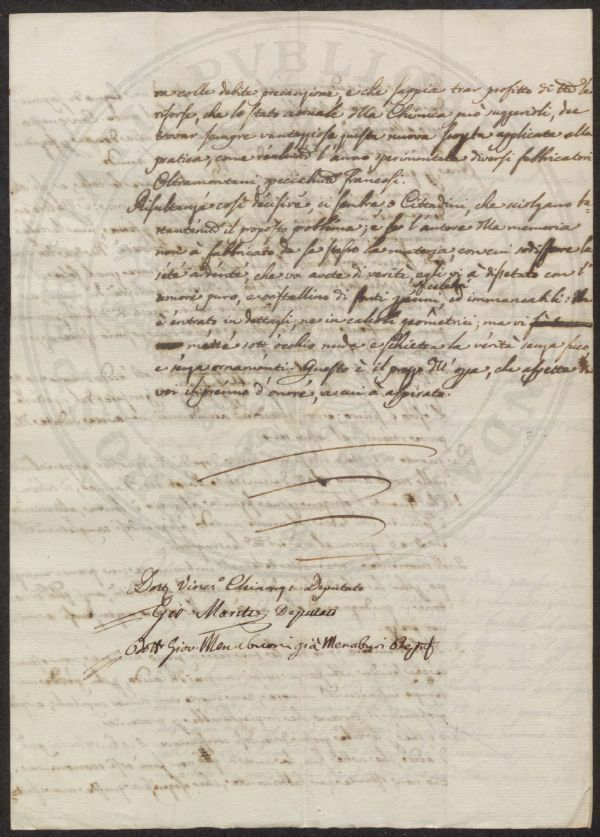 ra colle debite precauzione, e che sappia trar profitto di tte le
risorse, che lo stato attuale della Chimica può suggerirli, dee
trovar sempre vantaggiosa questa nuova applicata alla
pratica, come l'anno sperimentato diversi fabbricatori
Oltramontani, specialmte Francesi.
Risultanze così decisive ci sembra o Cittadini, che sciolgano ba=
stantemte il proposto problema; e se l'autore della memoria
non à fabbricato da se stesso la materia, convien la
sete ardente, che voi avete di verità, egli vi à disetato con l'
amore puro, e cristallino di fonti perenni, ed immancabili:
è entrato in dettagli, ne in calcoli geometrici; ma vi
mette sott'occhio nuda e schietta la verità senza
e senza ornamenti. Questo è il prezzo dell'opa, che aspetta da
voi il premio d'onore, a cui à aspirato.
Dottr Vinco Chiarugi Deputato
Gio. Mariti Deputato
Dottr Giov. Menabuoni già Menaburi